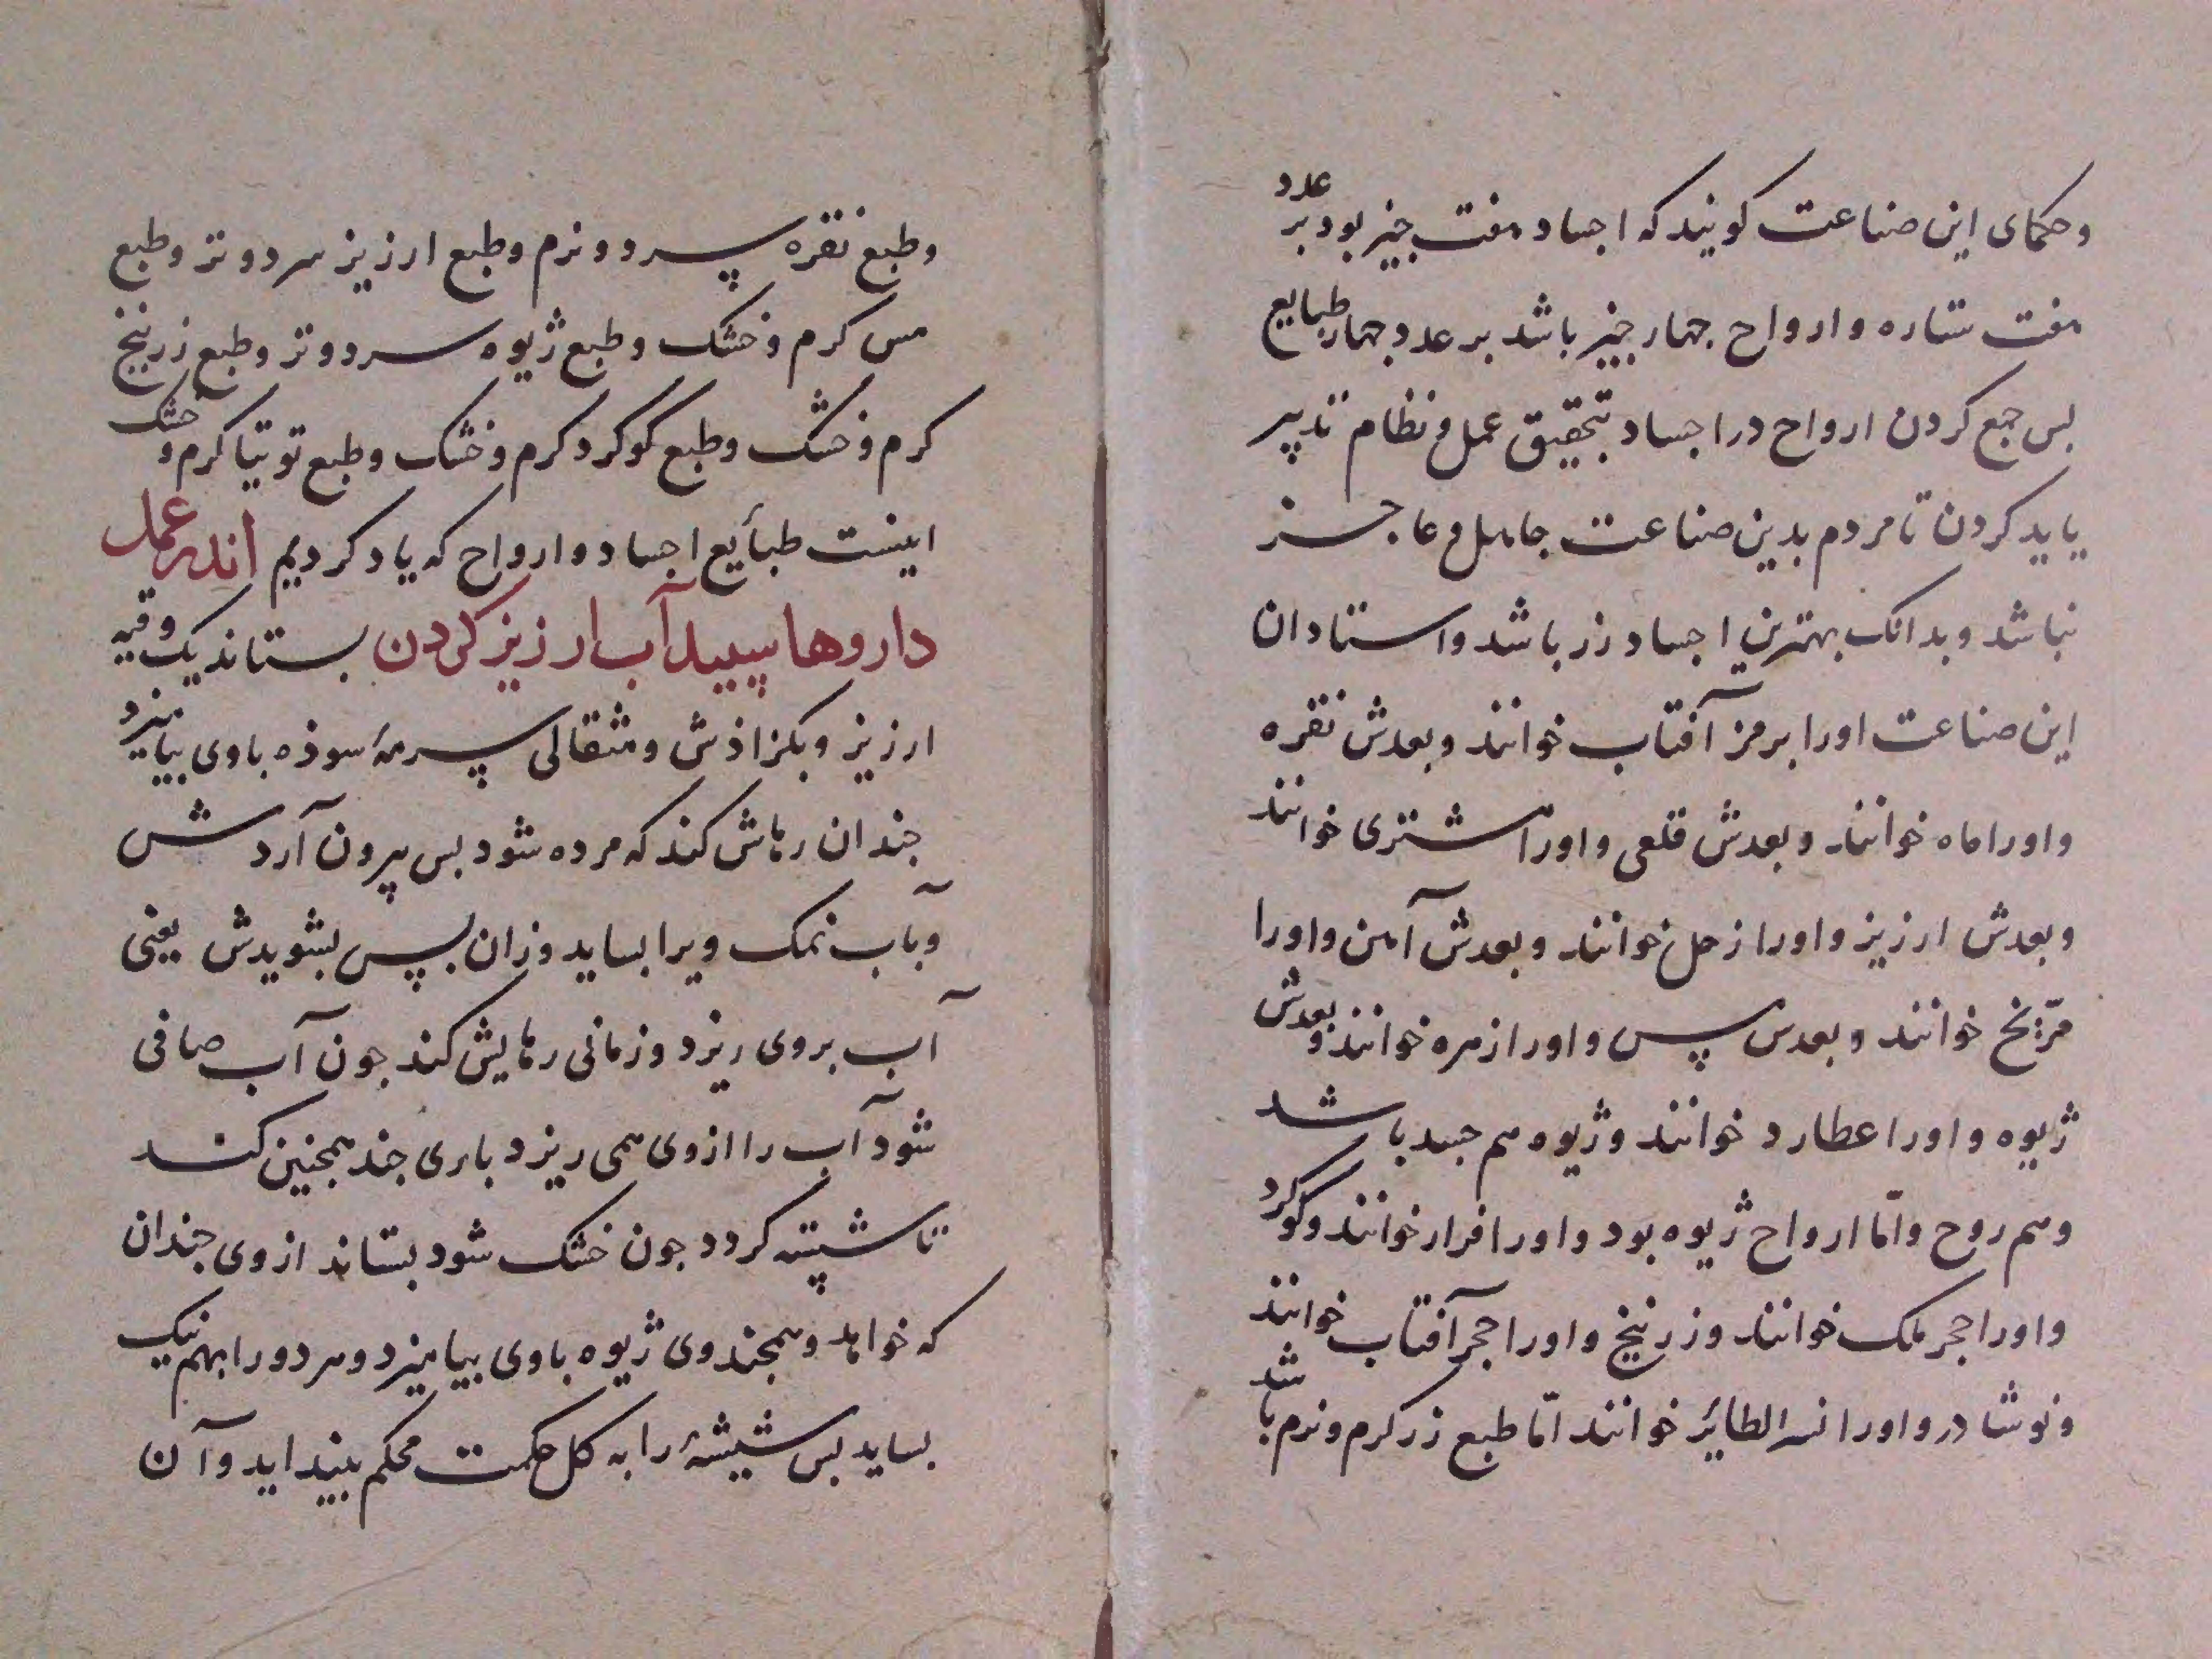 وحکمای این صناعت کویند که اجساد هفت جیز بود بر عدد
هفت ستاره و ارواح جهار جیز باشد بر عدد جهار طبایع
بس جمع کردن ارواح در اجساد بتحقیق عمل و نظام تدبیر
یاید کردن تا مردم بدین صناعت جاهل و عاجز
نباشد و بدانک بهترین اجساد زر باشد و استادان
این صناعت اورا برمز آفتاب خوانند و بعدش نقره
و اورا ماه خوانند و بعدش قلعی و اورا مشتری خوانند
و بعدش ارزیز و اورا زحل خوانند و بعدش آهن و اورا
مرّیخ خوانند و بعدش مس و اورا زهره خوانند و بعدش
ژیوه و اورا عطارد خوانند و ژیوه هم جسد باشد
و هم روح و امّا ارواح ژیوه بود و اورا فرار خوانند و کوکرد
و اورا حجر ملک خوانند و زرنیخ و اورا حجر آفتاب خوانند
و نوشادر و اورا نسر الطائر خوانند امّا طبع زر کرم و نرم باشد
و طبع نقره سرد و نرم و طبع ارزیز سرد و تر و طبع
مس کرم و خشک و طبع ژیوه سرد و تر و طبع زرنیخ
کرم و خشک و طبع کوکرد کرم و خشک و طبع توتیا کرم و خشک
اینست طبأیع اجساد و ارواح که یاد کردیم اندر عمل
داروها سپید آب ارزیز کردن بستاند یک وقیه
ارزیز و بکزاذش و مثقالی سرمهٔ سوذه باوی بیامیزد
جندان رهاش کند که مرده شود بس بیرون آردش
و بآب نمک ویرا بساید وزان بس بشویدش یعنی
آب بروی ریزد و زمانی رهایش کند جون آب صافی
شود آب را ازوی همی ریزد باری جند همجنین کند
تا شسته کردد جون خشک شود بستاند ازوی جندان
که خواهد و همجندوی ژیوه باوی بیامیزد و هر دو را بهم نیک
بساید بس شیشهٔ را به کل حکمت محکم بینداید و آن